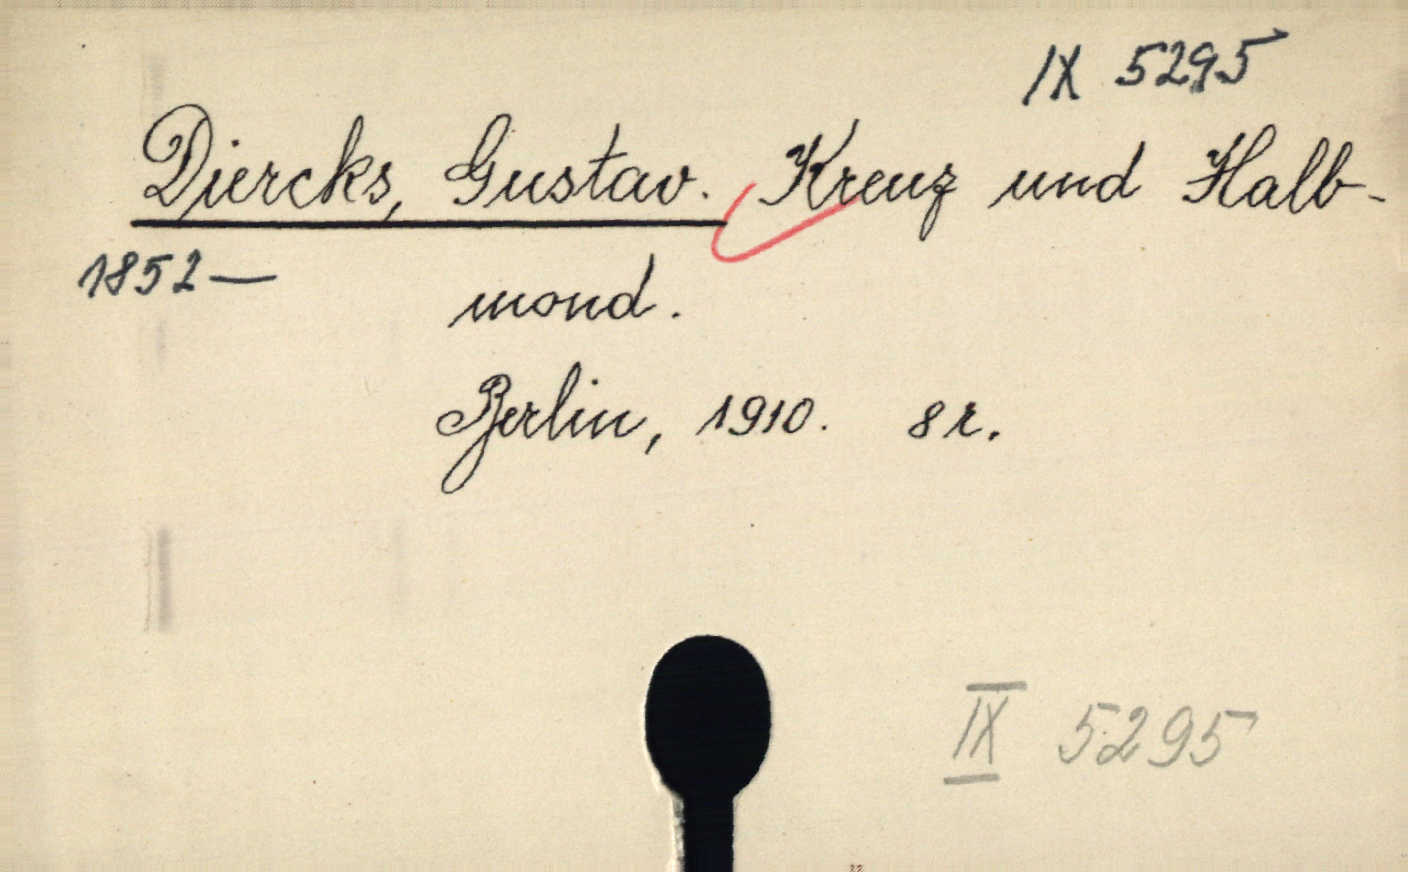 IX 5295
Diercks, Gustav. Kreuz und Halb-
1852—
mond.
Berlin, 1910. 8 r.
IX 5295